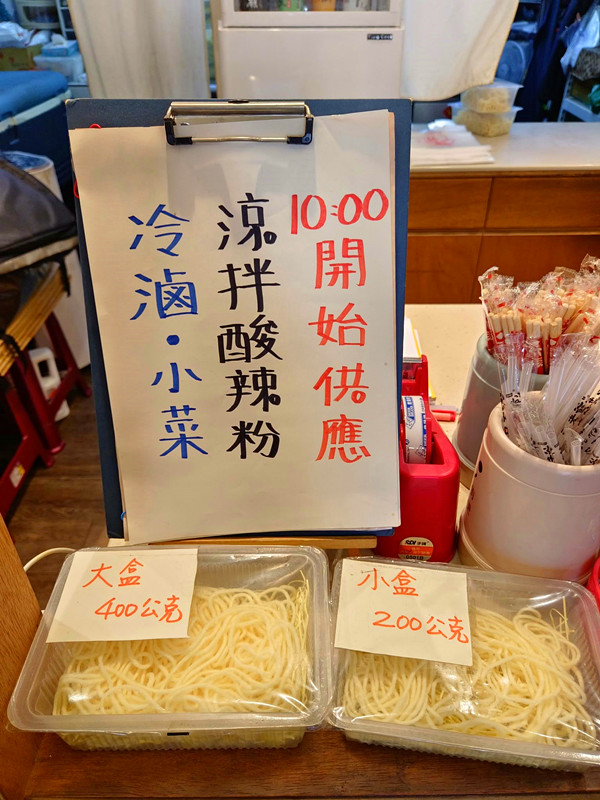 10:00
開始供應
涼拌酸辣粉
冷滷·小菜
大盒
400公克
小盒
200公克
SDI